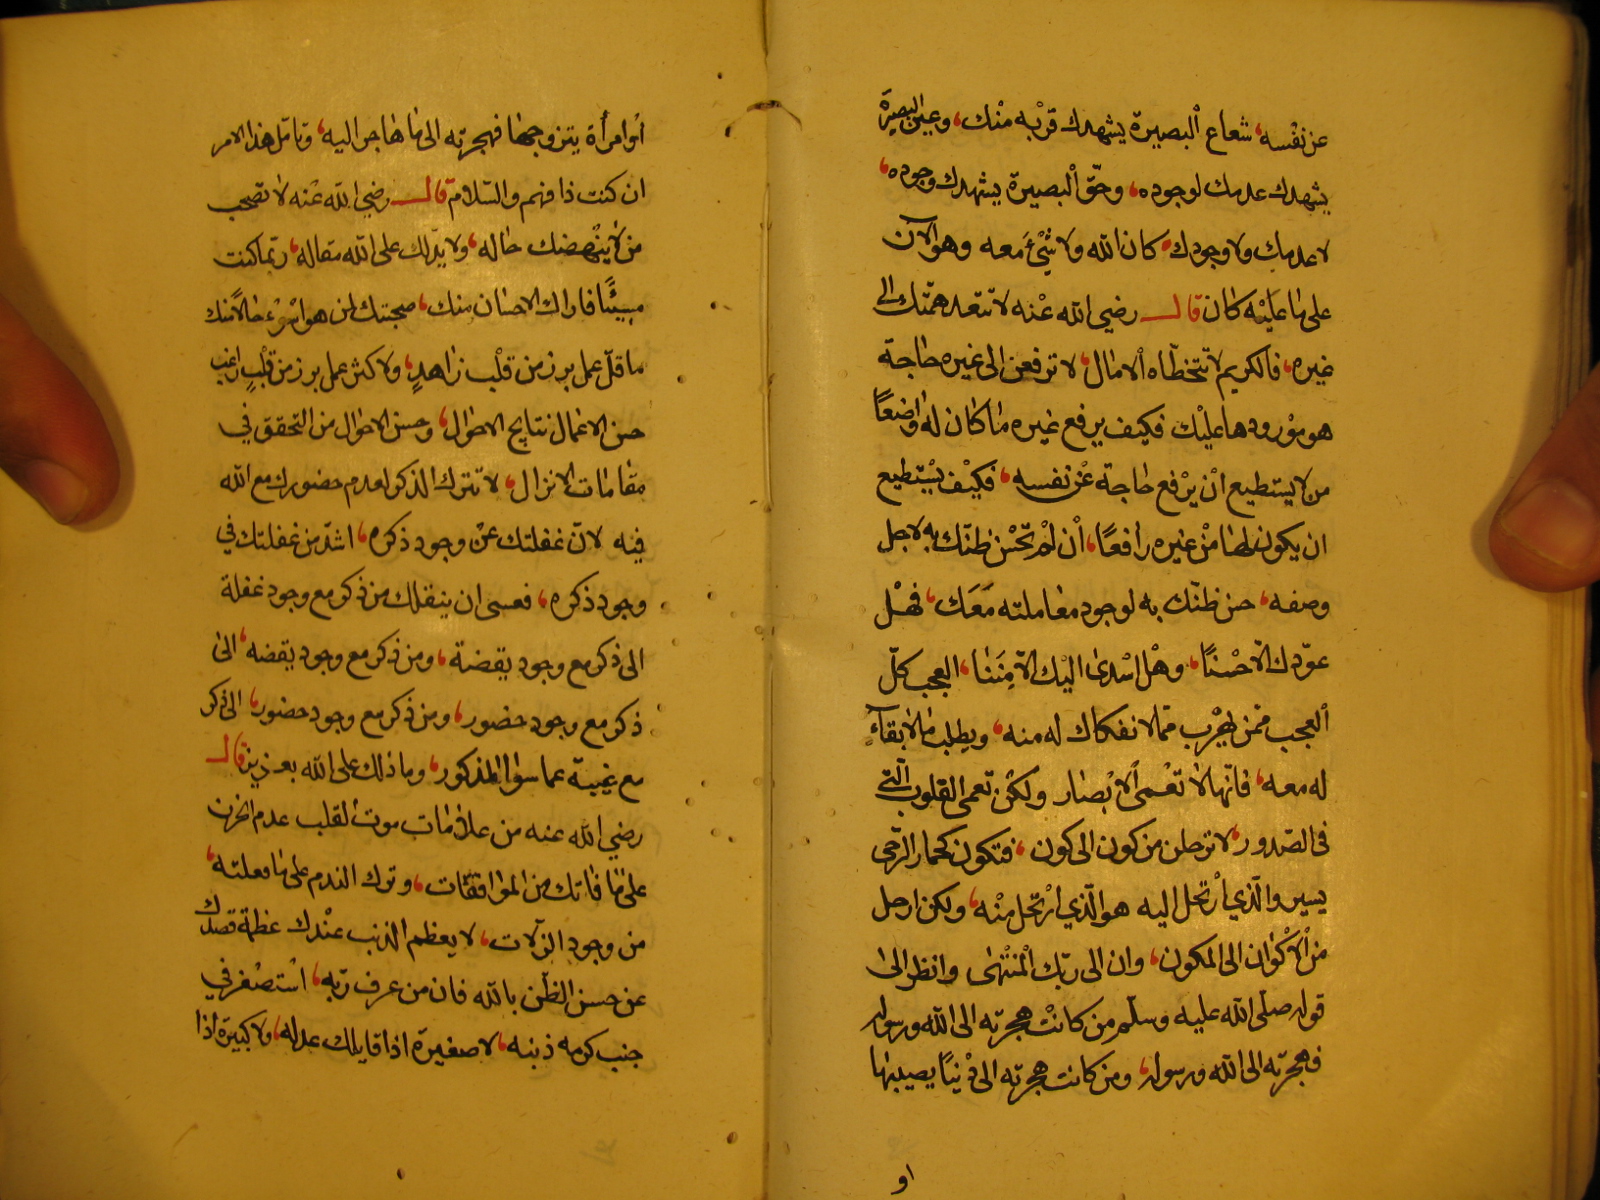 عن نفسه، شعاع البصيرة يشهدك قربه منك، وعين البصيرة
يشهدك عدمك لوجوده، وحق البصيرة يشهدك وجوده،
لا عدمك ولا وجودك، كان الله ولا شيء معه وهو الآن
على ما عليه كان قال رضي الله عنه لا تتعد همتك الى
غيره، فالكريم لا تتخطاه الامال، لا ترفعن الى غيره حاجة
هو موردها عليك فكيف يرفع غيره ما كان له واضعًا
من لا يستطيع أن يرفع حاجة عن نفسه، فكيف يستطيع
ان يكون لها من غيره رافعًا، أن لم تحسن ظنك به لاجل
وصفه، حسن ظنك به لوجود معاملته معك، فهل
عودك الا حسنًا، وهل اسدى اليك الا مننا، العجب كل
العجب ممن يهرب مما لا نفكاك له منه، ويطلب ما لا بقآء
له معه، فانها لا تعمى الابصار ولكن تعمى القلوب التي
في الصدور، لا ترحلن من كون الى كون، فتكون كحمار الرحى
يسير والذي أرتحل اليه هو الذي ارتحل منه، ولكن ارحل
من الأكوان الى المكون، وان الى ربك المنتهى وانظر الى
قوله صلى الله عليه وسلم من كانت هجرته الى الله ورسوله
فهجرته الى الله ورسوله، ومن كانت هجرته الى دنيًا يصيبها
او
أو امرأة يتزوجها فهجرته الى ما هاجر اليه، وتامل هذا الامر
ان كنت ذا فهم والسلام قال رضي الله عنه لا تصحب
من لا ينهضك حاله، ولا يدلك على الله مقاله، ربما كنت
مسيئًا فاراك الاحسان منك، صحبتك لمن هو اسوء حالًا منك
ما قل عمل برز من قلب زاهدٍ، ولا كثر عمل برز من قلبٍ راغب
حسن الاعمال نتايج الاحوال، وحسن الاحوال من التحقق في
مقامات الانزال، لا تترك الذكر لعدم حضورك مع الله
فيه لان غفلتك عن وجود ذكره، اشد من غفلتك في
وجود ذكره، فعسى ان ينقلك من ذكر مع وجود غفلة
الى ذكر مع وجود يقضة، ومن ذكر مع وجود يقضه، الى
ذكر مع وجود حضور، ومن ذكر مع وجود حضور، الى ذكر
مع غيبة عما سوا المذكور، وما ذلك على الله بعزيز قال
رضي الله عنه من علامات موت القلب عدم الحزن
على ما فاتك من الموافقات، وترك الندم على ما فعلته،
من وجود الزلات، لا يعظم الذنب عندك عظمة تصدك
عن حسن الظن بالله فان من عرف ربه، استصغر في
جنب كرمه ذنبه، لا صغيرة اذا قابلك عدله، ولا كبيرة اذا